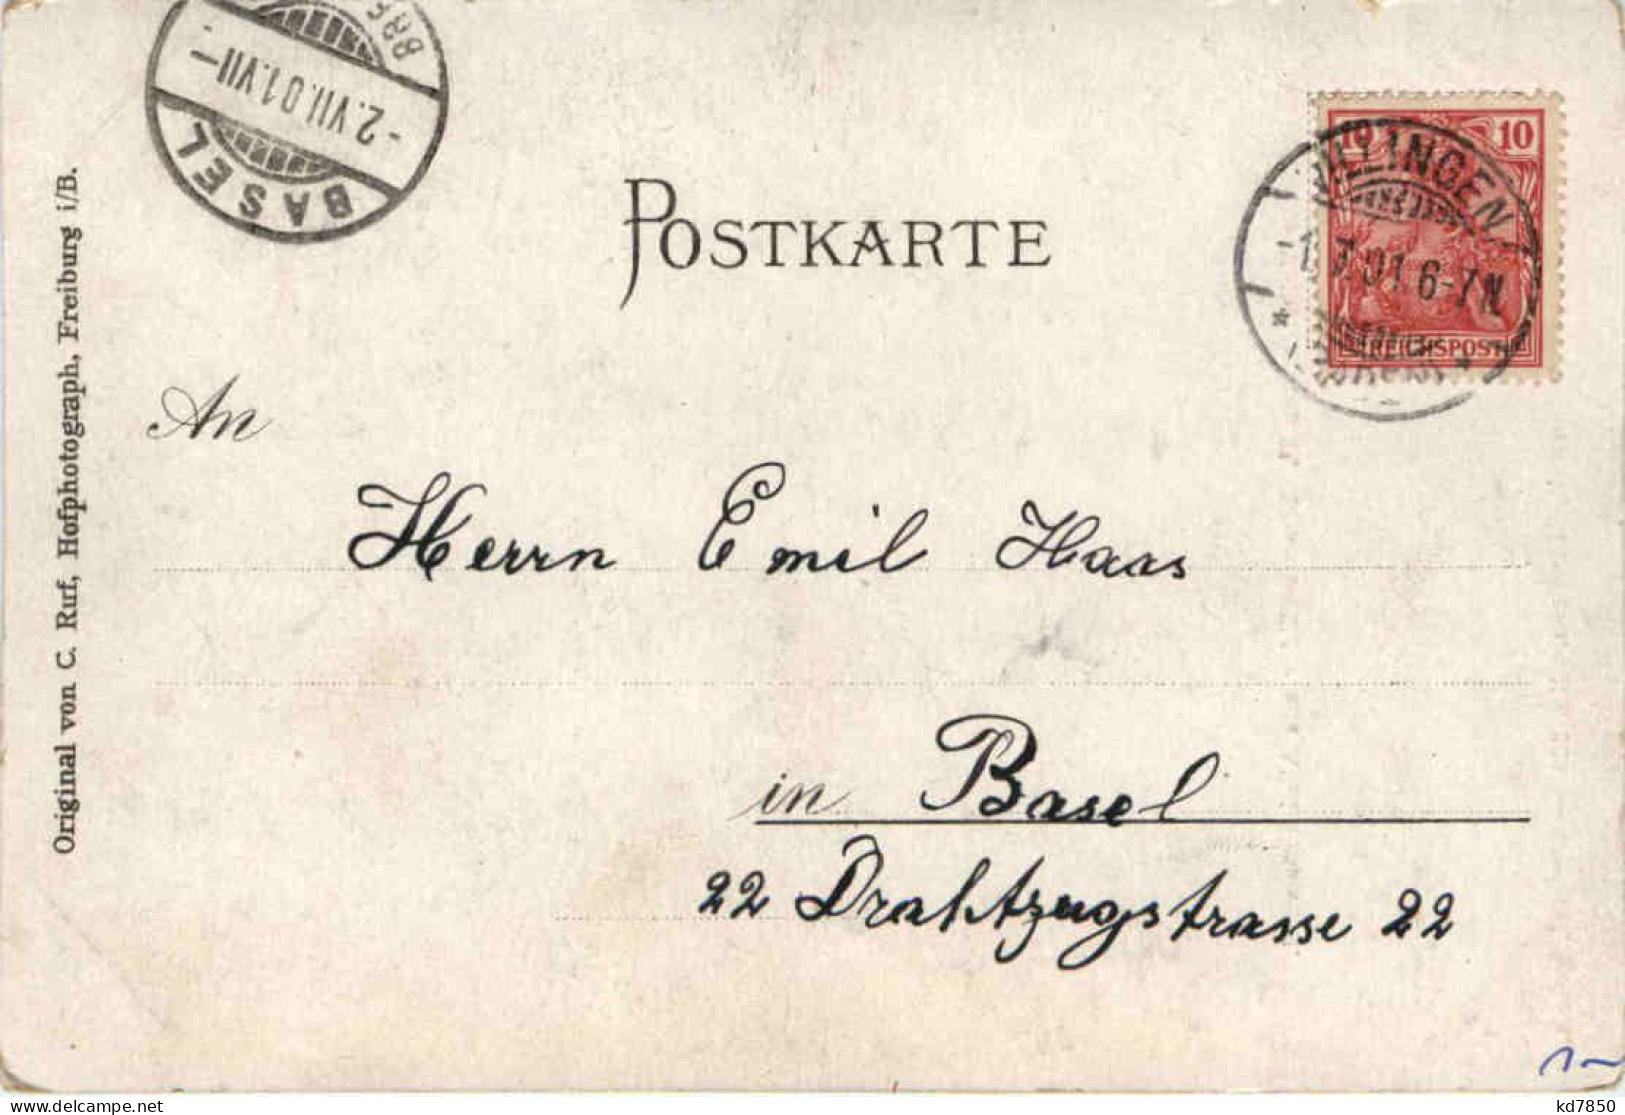 BASEL
-2.VII.01.VII-
POSTKARTE
10 10
VILLINGEN
1.7.01.6-7N
REICHSPOST
An
Herrn Emil Haas
in Basel
22 Drahtzugstrasse 22
Original von C. Ruf, Hofphotograph, Freiburg i/B.
kd7850